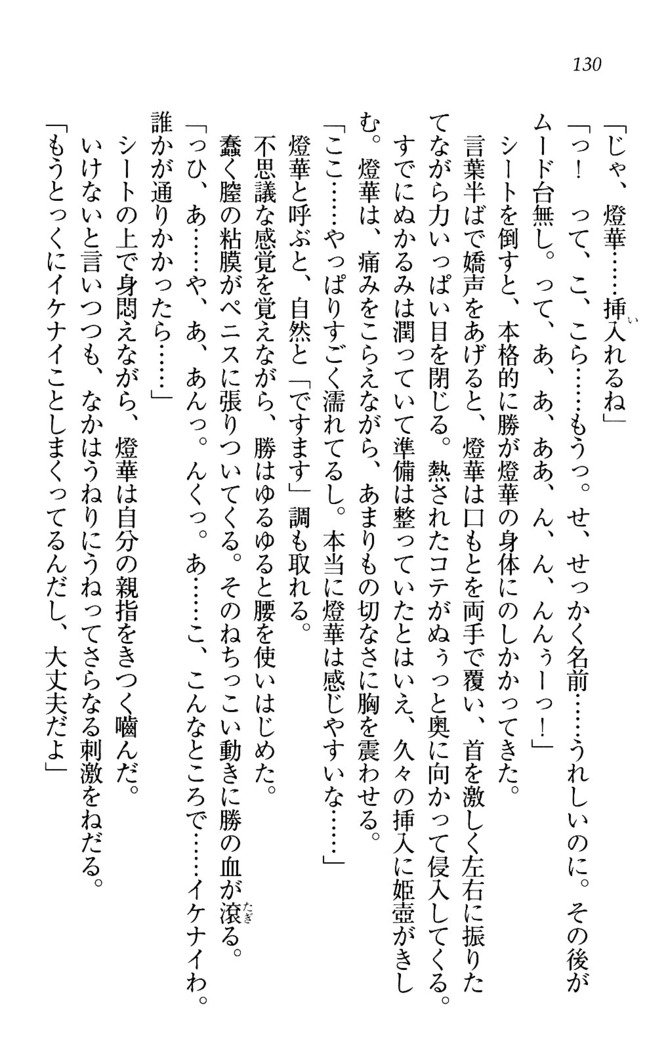 130
「じゃ、燈華……挿入れるね」
い
「っ！　って、こ、こら……もうっ。せ、せっかく名前……うれしいのに。その後が
ムード台無し。って、あ、あ、ああ、ん、ん、んんぅーっ！」
シートを倒すと、本格的に勝が燈華の身体にのしかかってきた。
言葉半ばで嬌声をあげると、燈華は口もとを両手で覆い、首を激しく左右に振りた
てながら力いっぱい目を閉じる。熱されたコテがぬぅっと奥に向かって侵入してくる。
すでにぬかるみは潤っていて準備は整っていたとはいえ、久々の挿入に姫壺がきし
む。燈華は、痛みをこらえながら、あまりもの切なさに胸を震わせる。
「ここ……やっぱりすごく濡れてるし。本当に燈華は感じやすいな……」
燈華と呼ぶと、自然と「ですます」調も取れる。
不思議な感覚を覚えながら、勝はゆるゆると腰を使いはじめた。
蠢く膣の粘膜がペニスに張りついてくる。そのねちっこい動きに勝の血が滾る。
たぎ
「っひ、あ……や、あ、あんっ。んくっ。あ……こ、こんなところで……イケナイわ。
誰かが通りかかったら……」
シートの上で身悶えながら、燈華は自分の親指をきつく嚙んだ。
いけないと言いつつも、なかはうねりにうねってさらなる刺激をねだる。
「もうとっくにイケナイことしまくってるんだし、大丈夫だよ」